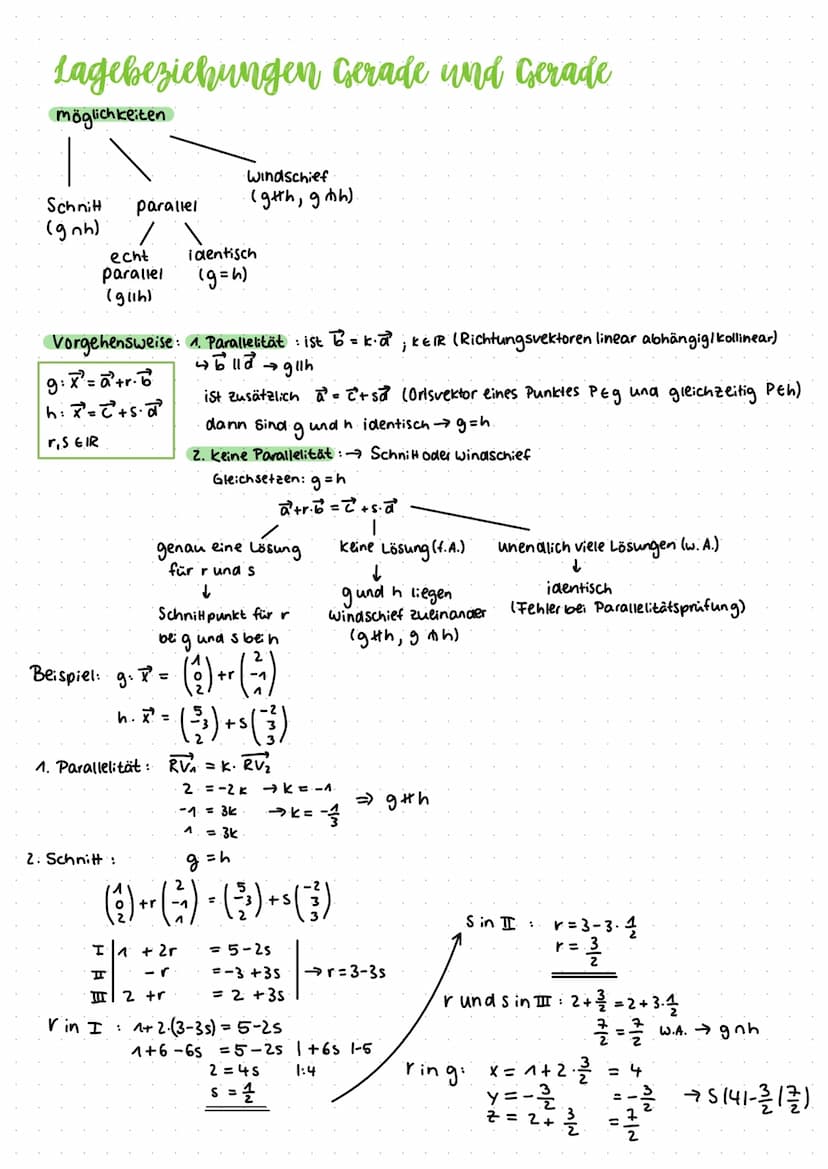 Lagebeziehungen Gerade und Gerade
möglichkeiten
Schnitt
(g∩h)
parallel
windschief
(g∦h, g⋔h)
echt
parallel
(g||h)
identisch
(g=h)
Vorgehensweise: 1. Parallelität : ist b⃗ = k·d⃗ ; k∈ℝ (Richtungsvektoren linear abhängig/kollinear)
↪ b⃗ || d⃗ → g||h
ist zusätzlich a⃗ = c⃗+sd⃗ (Ortsvektor eines Punktes P∈g und gleichzeitig P∈h)
dann sind g und h identisch → g=h
g: x⃗ = a⃗+r·b⃗
h: x⃗ = c⃗+s·d⃗
r,s ∈ℝ
2. keine Parallelität : → Schnitt oder windschief
Gleichsetzen: g=h
a⃗+r·b⃗ = c⃗+s·d⃗
genau eine Lösung
für r und s
↓
Schnittpunkt für r
bei g und s bei h
keine Lösung (f.A.)
↓
g und h liegen
windschief zueinander
(g∦h, g⋔h)
unendlich viele Lösungen (w.A.)
↓
identisch
(Fehler bei Parallelitätsprüfung)
Beispiel: g: x⃗ = (1 0 2) + r (2 -1 1)
h: x⃗ = (5 -3 2) + s (-2 3 3)
1. Parallelität : RV₁ = k· RV₂
2 = -2k → k = -1
-1 = 3k → k = -1/3
1 = 3k
⇒ g∦h
2. Schnitt : g = h
(1 0 2) + r (2 -1 1) = (5 -3 2) + s (-2 3 3)
I | 1 + 2r = 5-2s
II | -r = -3 +3s | → r = 3-3s
III | 2 +r = 2 +3s
r in I : 1+2·(3-3s) = 5-2s
1+6-6s = 5-2s | +6s |-5
2 = 4s |:4
s = 1/2
s in II : r = 3-3·1/2
r = 3/2
r und s in III : 2+3/2 = 2+3·1/2
7/2 = 7/2 w.A. → g∩h
r in g: x = 1+2·3/2 = 4
y = -3/2 = -3/2 → S(4|-3/2|7/2)
z = 2+3/2 = 7/2